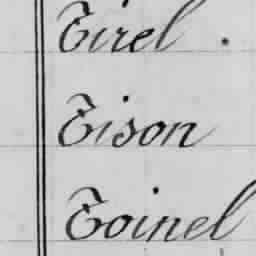 Tirel .
Tison
Toinel